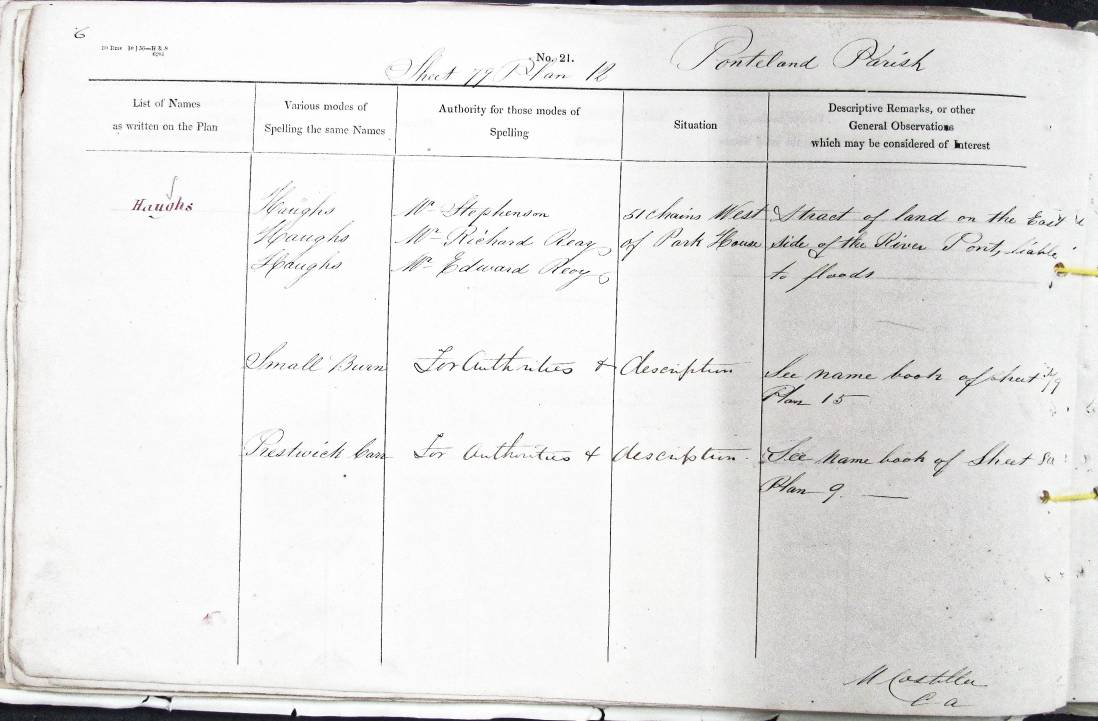 6
No. 21.
Sheet 79 Plan 12
Ponteland Parish
List of Names
as written on the Plan
Various modes of
Spelling the same Names
Authority for those modes of
Spelling
Situation
Descriptive Remarks, or other
General Observations
which may be considered of Interest
Haughs
Haughs Mr Stephenson 51 chains West A tract of land on the East
Haughs Mr Richard Reay of Park House side of the River Pont, liable
Haughs Mr Edward Reay to floods
Small Burn For Authorities & description See name book of sheet 79
Plan 15
Prestwick Carr For Authorities & description See name book of Sheet 80
Plan 9.
C a